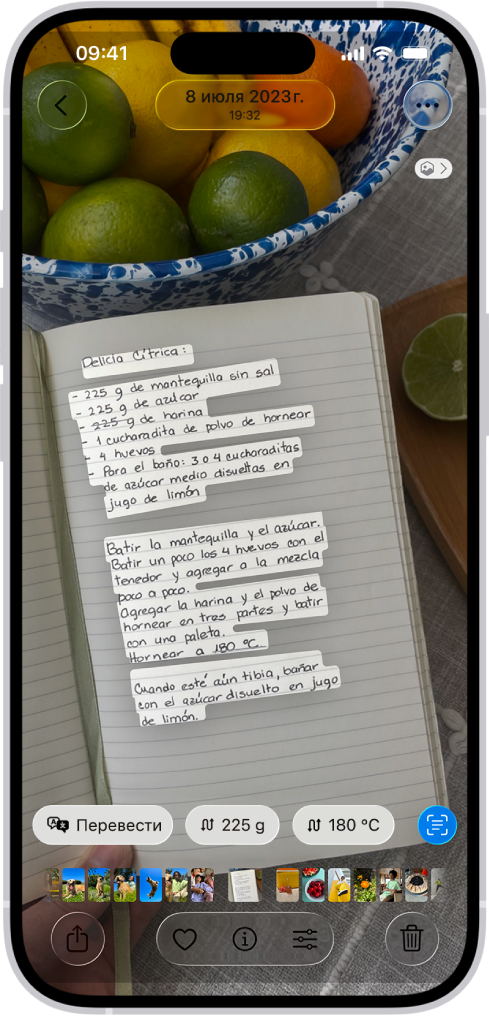 09:41
8 июля 2023 г.
19:32
Delicia Cítrica:
- 225 g de mantequilla sin sal
- 225 g de azúcar
- 225 g de harina
- 1 cucharadita de polvo de hornear
- 4 huevos
- Para el baño: 3 o 4 cucharaditas
de azúcar medio disueltas en
jugo de limón
Batir la mantequilla y el azúcar.
Batir un poco los 4 huevos con el
tenedor y agregar a la mezcla
poco a poco.
Agregar la harina y el polvo de
hornear en tres partes y batir
con una paleta.
Hornear a 180 °C.
Cuando esté aún tibia, bañar
con el azúcar disuelto en jugo
de limón.
Перевести
225 g
180 °C